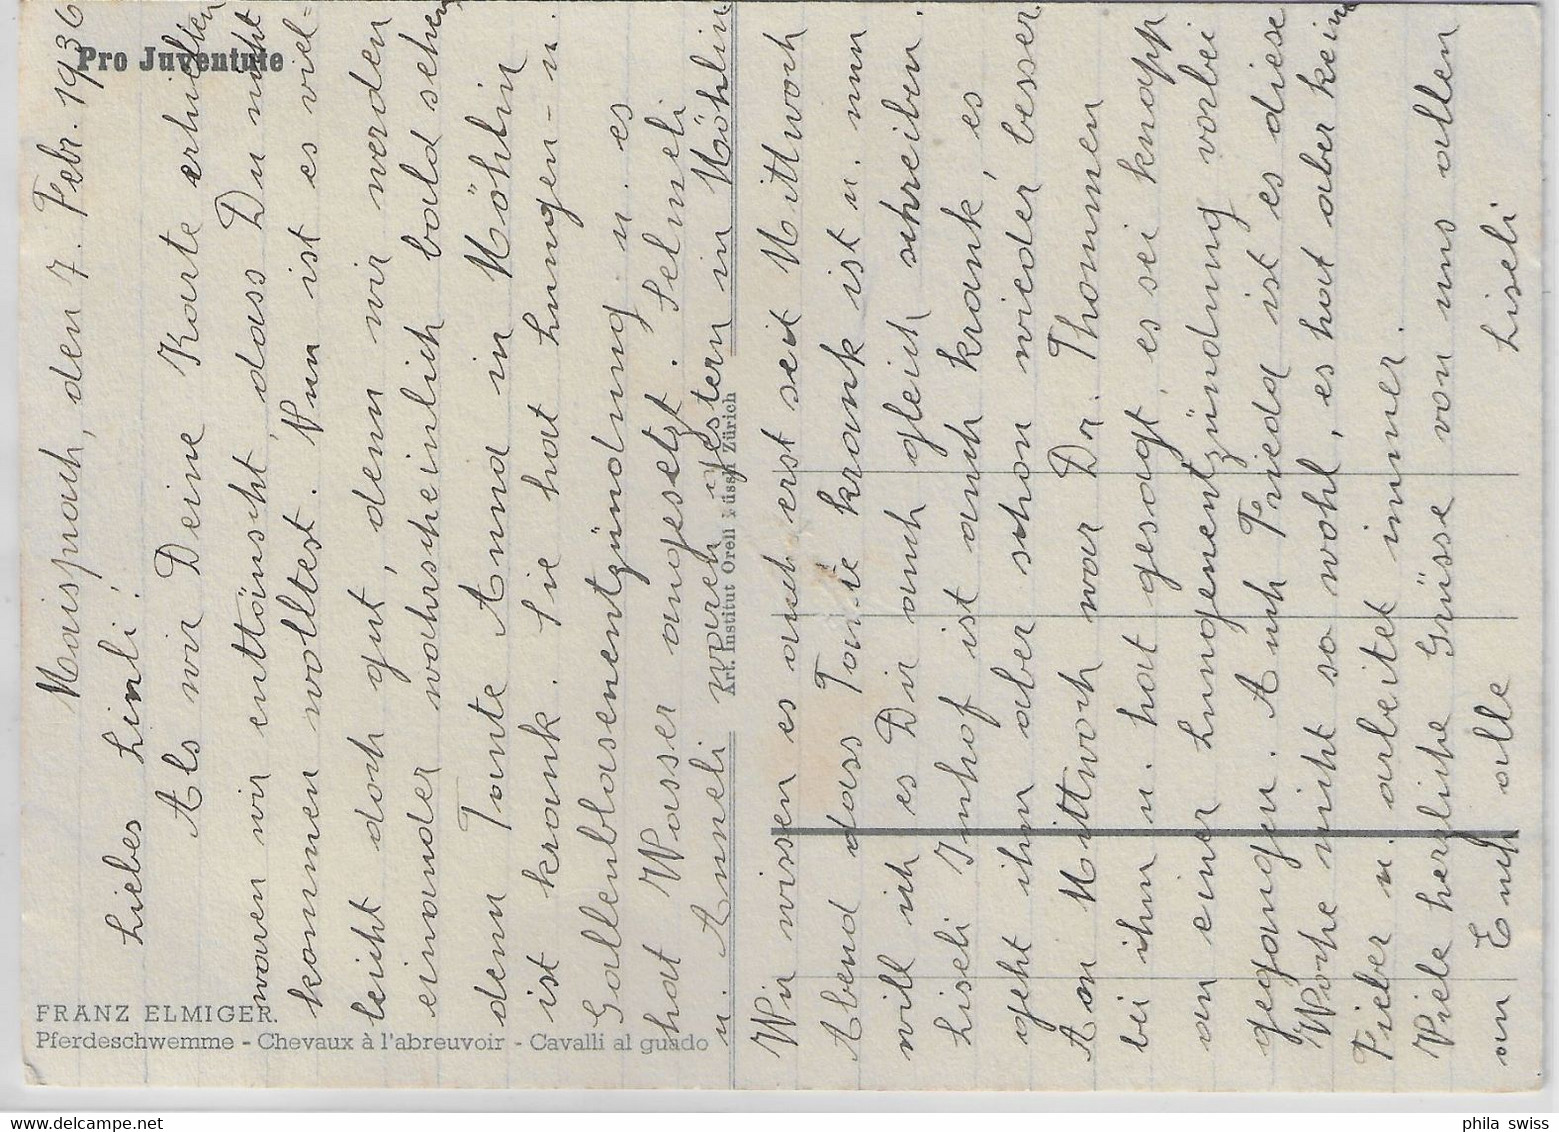 Pro Juventute
FRANZ ELMIGER.
Pferdeschwemme - Chevaux à l'abreuvoir - Cavalli al guado
Art. Institut Orell Füssli Zürich
Maisprach, den 7. Febr. 1936
Liebes Linli!
Als wir Deine Karte erhielten
waren wir enttäuscht, dass Du nicht
kommen wolltest. Nun ist es viel=
leicht doch gut, denn wir werden
einander wahrscheinlich bald sehen,
denn Tante Anna in Möhlin
ist krank. Sie hat Lungen- u.
Gallenblasenentzündung u. es
hat Wasser angesetzt. Selmeli
u. Anneli waren gestern in Möhlin
Wir wissen es auch erst seit Mittwoch
Abend dass Tante krank ist u. nun
will ich es Dir auch gleich schreiben.
Liseli Imhof ist auch krank, es
geht ihm aber schon wieder besser.
Am Mittwoch war Dr. Thommen
bei ihm u. hat gesagt, es sei knapp
an einer Lungenentzündung vorbei
gegangen. Auch Frieda ist es diese
Woche nicht so wohl, es hat aber kein
Fieber u. arbeitet immer.
Viele herzliche Grüsse von uns allen
an Euch alle
Liseli
phila swiss